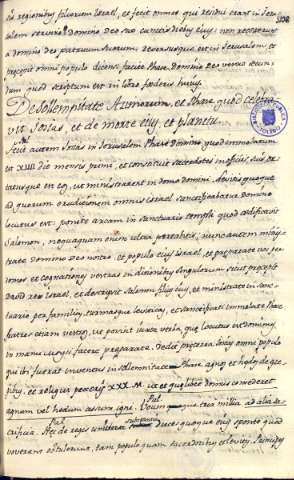 de regionibus filiorum Israel, et fecit omnes qui residui erant in Jeru-
salem servire domino deo suo cunctis diebus eius non recesserunt
a domino deo patrum suorum, reversusque est in Jerusalem, et
praecepit omni populo dicens facite Phase domino deo vestro secun-
dum quod scriptum est in libro foederis huius.
De sollemnitate Azimorum, et Phase quod celebra-
vit Josias, et de morte eius, et planctu.
Fecit autem Josias in Jerusalem Phase domino quod immolatum
est XIIII die mensis primi, et constituit sacerdotes in officiis suis, hor-
tatusque est eos, ut ministrarent in domo domini, Levitis quoque
ad quorum eruditionem omnis israel sanctificabatur domino
locutus est: ponite arcam in sanctuario templi quod aedificavit
Salomon, nequaquam enim ultra portabitis, nunc autem minis-
trate domino deo vestro, et populo eius israel, et praeparate vos per do-
mos et cognationes vestras in divisionibus singulorum sicut praecepit
David rex israel, et descripsit Salomon filius eius, et ministrate in sanc-
tuario per familias, turmasque leviticas, et sanctificati immolate Phase
fratres etiam vestros, ut possint iuxta verba, quae locutus est dominus
in manu moysi facere praeparate. Dedit praeterea Josias omni populo
qui ibi fuerat inventus in sollemnitate Phase, agnos et hedos de gre-
gibus, et reliqui pecoris XXX.M.
agnum vel hedum assum igni. Boum quoque tria millia ad alia sa-
crificia. Haec de regis universa substantia duces quoque eius sponte quod
voverant obtulerunt, tam populo quam sacerdotibus et levitis, Principes